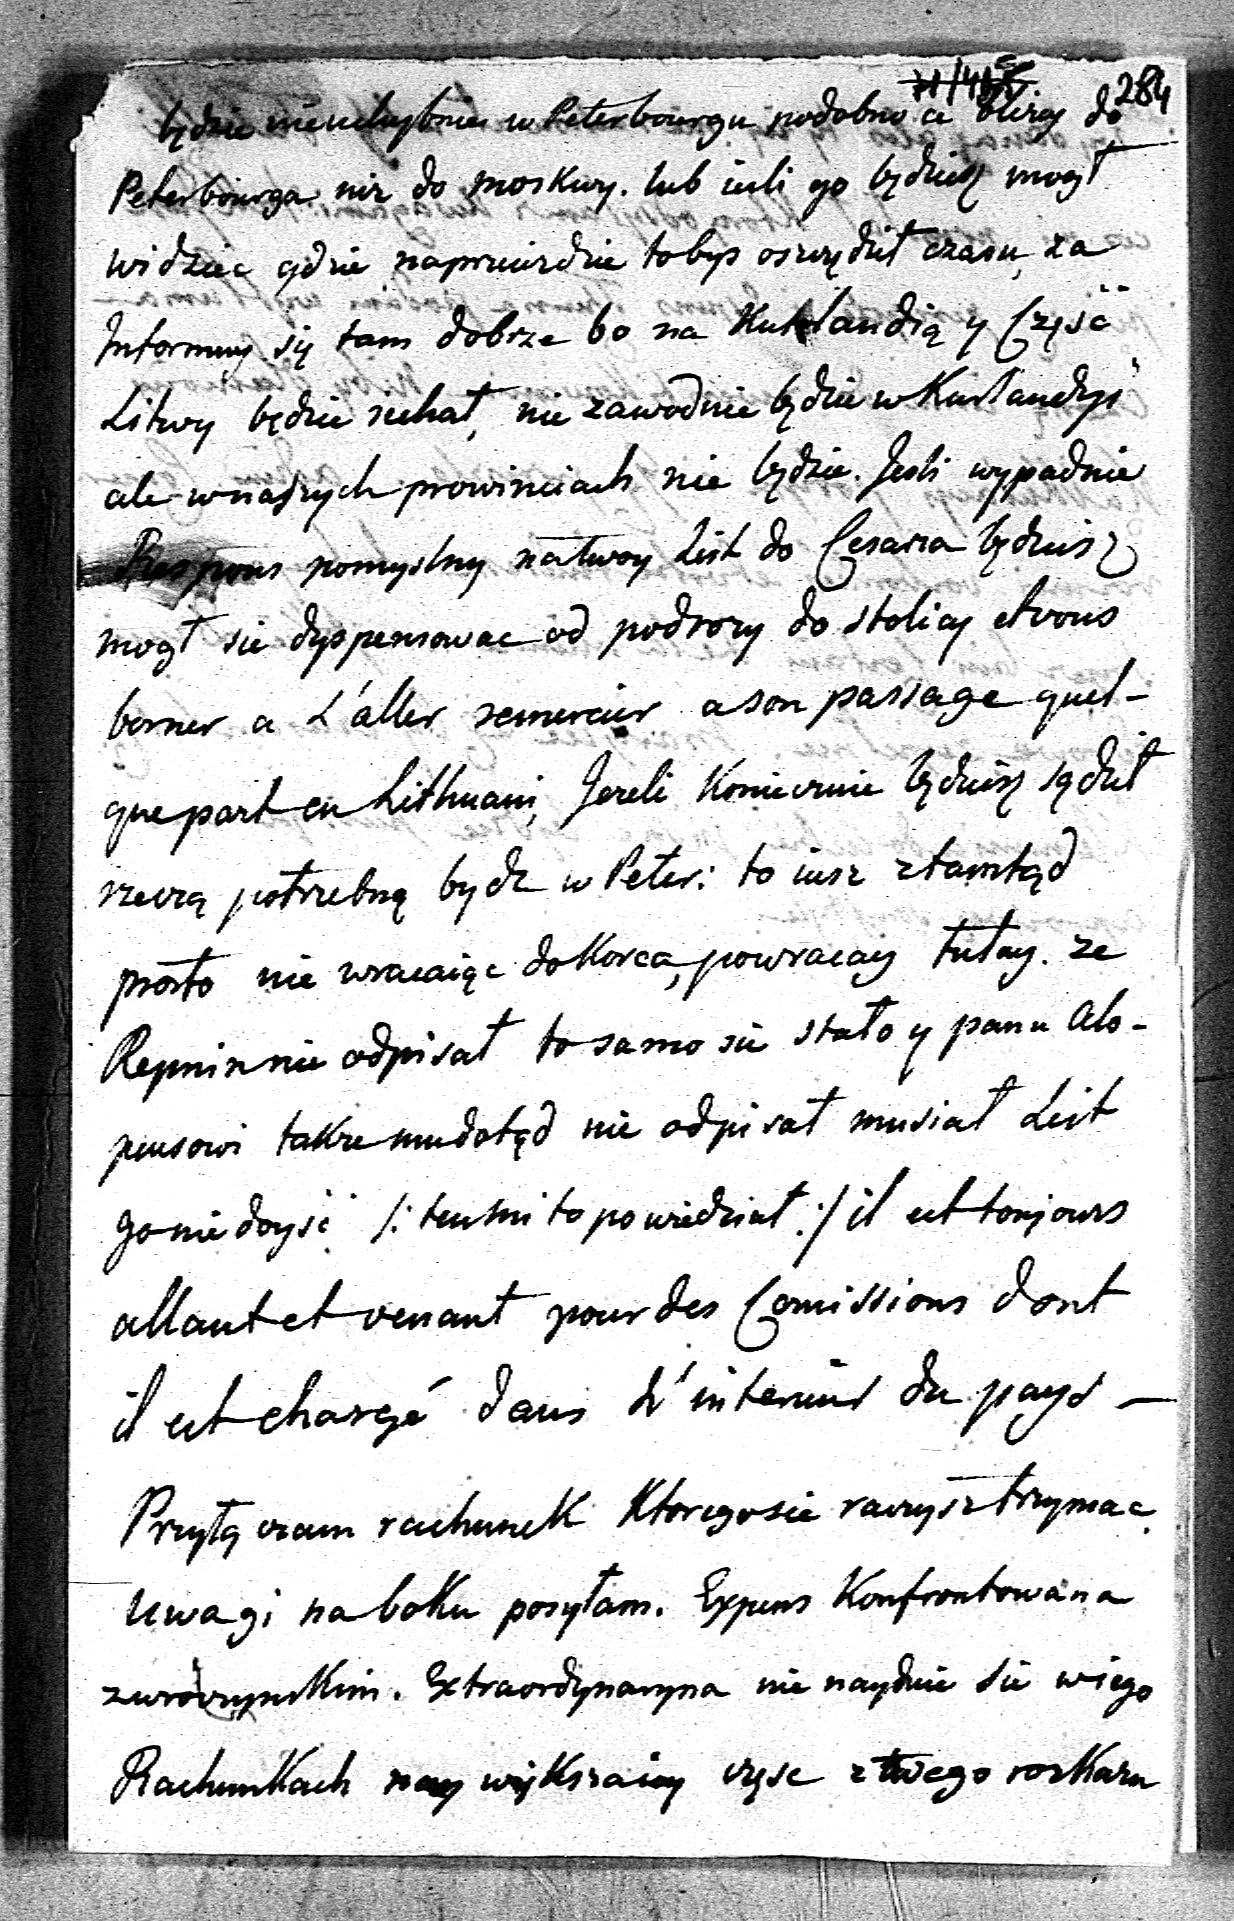 284
będzie nieuchybnie w Peterbourgu podobno ci bliżey do
Peterbourga niz do Moskwy. lub iesli go będziesz mogł
widziec gdzie naprzeiezdzie tobys oszczędził czasu, za
Informuy się tam dobrze bo na Kurlandią y Część
Litwy będzie iechał, nie zawodnie będzie w Kurlandyi
ale wnaszych prowinciach nie będzie. Jesli wypadnie
Respons pomyslny natwoy List do Cesarza będziesz
mogł sie dyspensowac od podrozy do stolicy et vous
borner a L'aller remercier a son passage quel-
que part en Lithuani, Jezeli Koniecznie będziesz sądził
rzeczą potrzebną bydz w Peter: to iusz ztamtąd
prosto nie wracaiąc do Korca, powracay tutay. ze
Repnin nie odpisał to samo sie stało y panu Alo-
peusowi takze mu dotąd nie odpisał musiał List
go nie doyść /: ten mi to powiedział :/ il est toujours
allant et venant pour des Comissions dont
il est chargé dans L'interieur du pays —
Przyłączam rachunek Ktoregosie raczysz trzymac
Uwagi na boku posyłam. Expens Konfrontowana
z wrόczynskim. Extraordynaryna nie naydzie sie w iego
Rachunkach nay większaiey częsc z twego rozkazu